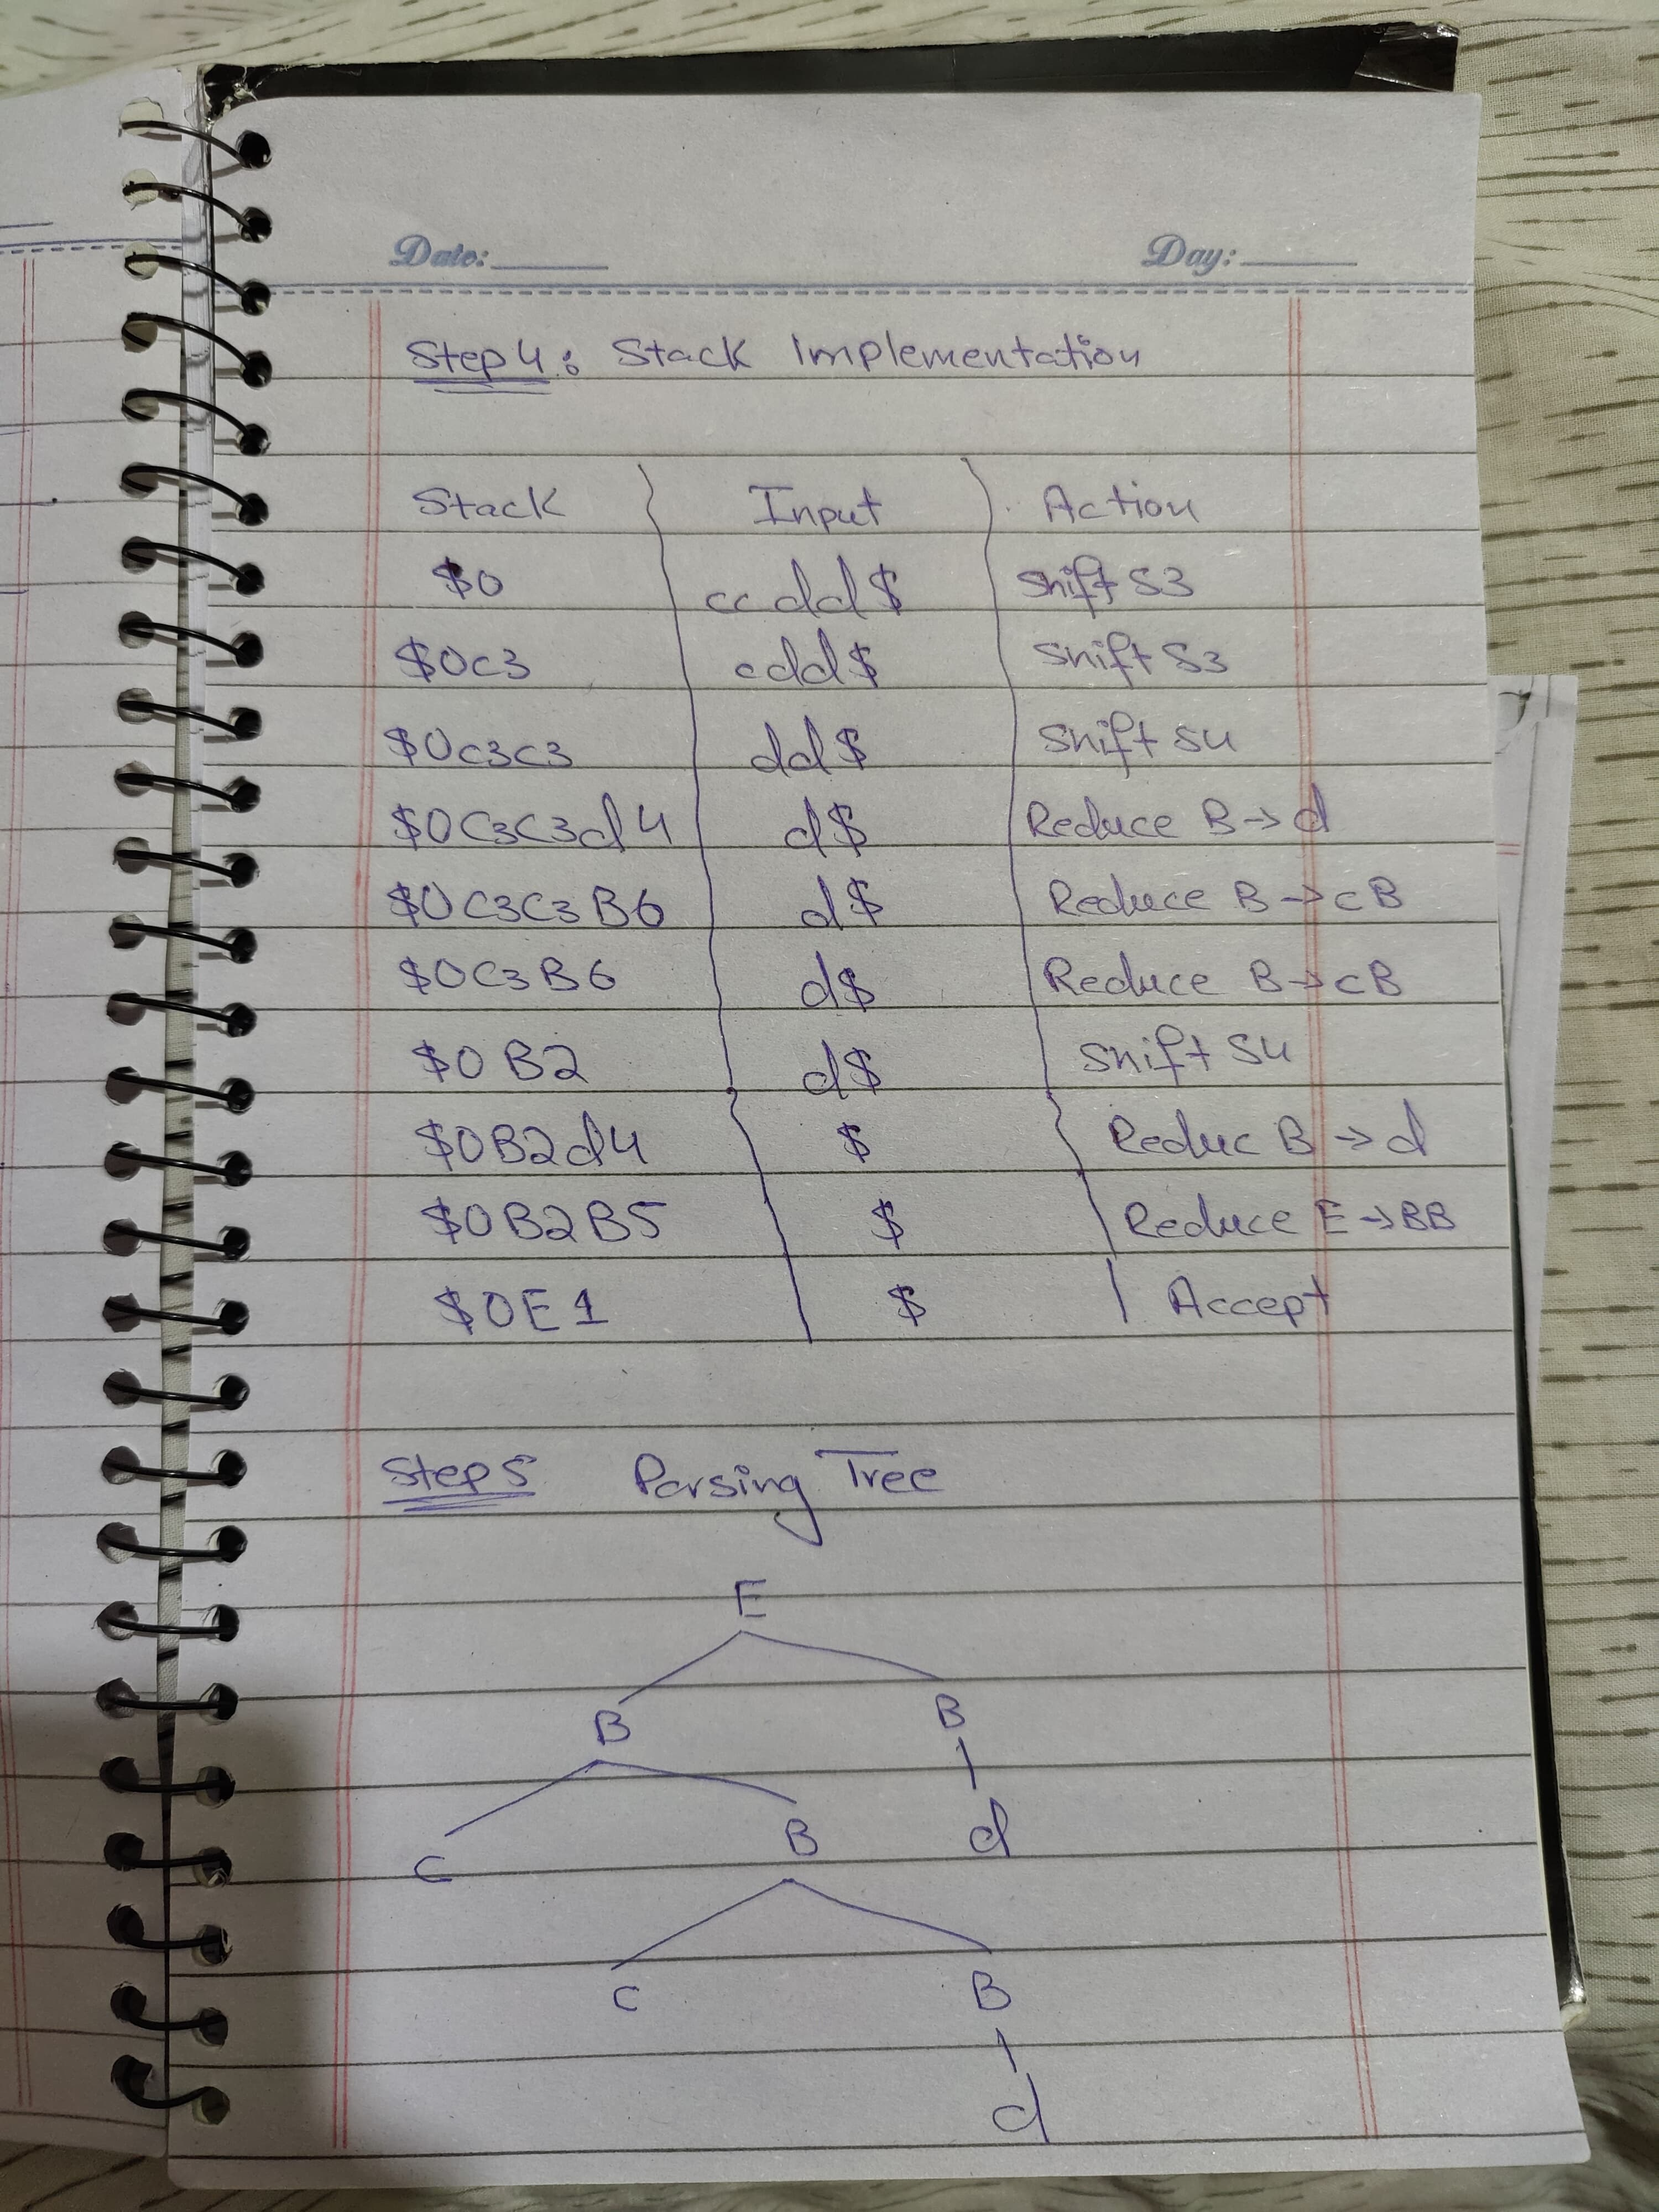 Date: Day:
Step 4: Stack Implementation
Stack Input Action
$0 ccdd$ Shift S3
$0c3 cdd$ Shift S3
$0c3c3 dd$ Shift S4
$0c3c3d4 d$ Reduce B→d
$0c3c3B6 d$ Reduce B→cB
$0c3B6 d$ Reduce B→cB
$0B2 d$ Shift S4
$0B2d4 $ Reduc B→d
$0B2B5 $ Reduce E→BB
$0E1 $ Accept
Step 5 Parsing Tree
E
B B
C B d
C B
d